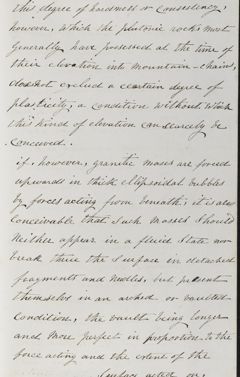 this degree of hardness or consistency,
however, which the plutonic rocks most
Generally have possessed at the time of
their elevation into Mountain-chains,
does not exclude a certain degree of
plasticity; a condition without which
this kind of elevation can scarcely be
conceived.
if, however, granitic masses are forced
upwards in thick ellipsoidal bubbles
by forces acting from beneath; it is also
conceivable that such masses should
Neither appear in a fluid State nor
break thro' the Surface in detached
fragments and needles, but present
themselves in an arched or vaulted
Condition, the vault being longer
and more perfect in proportion to the
force acting and the extent of the
Surface acted on